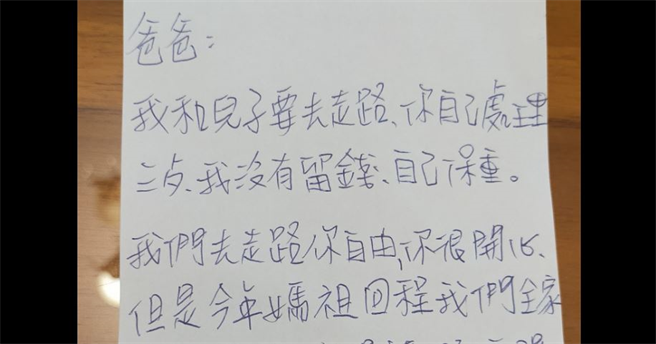 爸爸：
我和兒子要去走路、你自己處理
三点、我沒有留錢、自己保重。
我們去走路你自由,你很開心、
但是今年媽祖回程我們全家